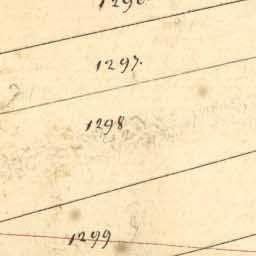 1296
1297.
1298
1299